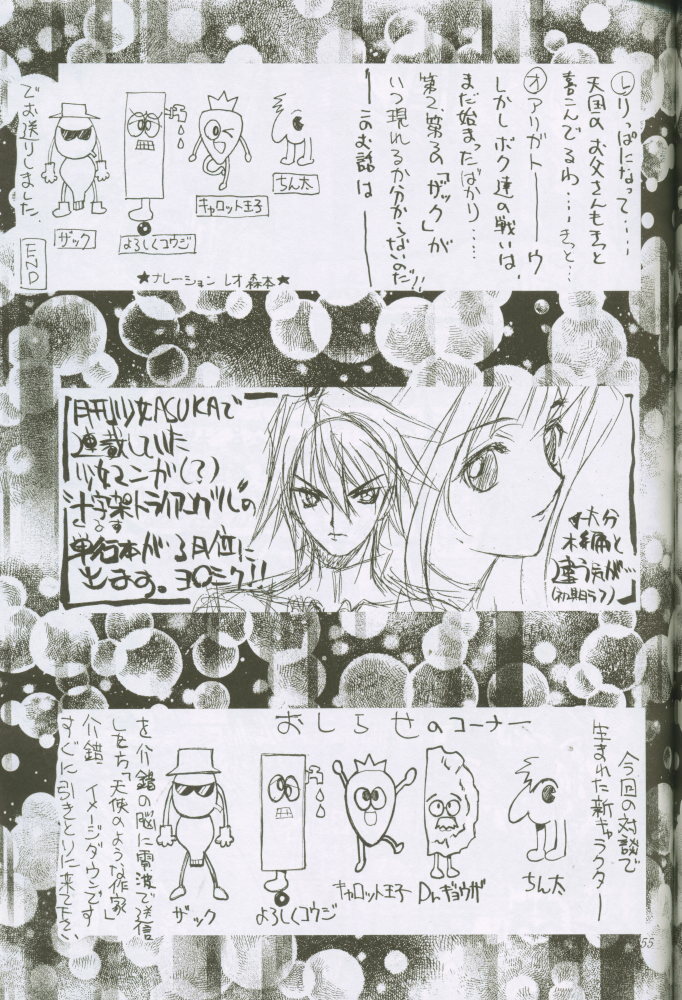 Ⓛりっぱになって・・・・
天国のお父さんもきっと
喜こんでるわ・・・・きっと・・・
㋔アリガトーーーウ
しかしボク達の戦いは、
まだ始まったばかり・・・・・
第2、第3の「ザック」が
いつ現れるか分からないのだ!!
――このお話は――
ちん太
キャロット王子
よろしくコウジ
ザック
★ナレーション レオ森本★
でお送りしました。
END
月刊少女ASUKAで
連載していた
少女マンガ(?)
十字架トライアングルの
単行本が3月位に
出ます。ヨロシク!!
大分
本編と
違う気が…
(初期ラフ)
おしらせのコーナー
今回の対談で
生まれた新キャラクター
ちん太
Dr.ギョウザ
キャロット王子
よろしくコウジ
ザック
を介錯の脳に電波で送信
した方「天使のような作家」
介錯 イメージダウンです
すぐに引きとりに来て下さい
55